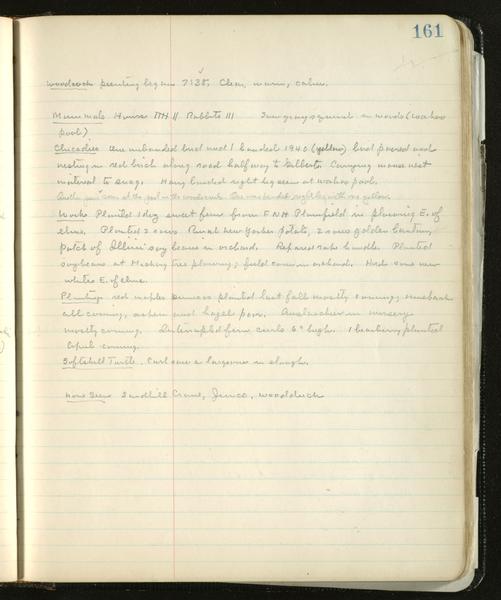 161
Woodcock peenting began 7:38, Clear, warm, calm.
Mammals Hares Rabbits III Saw gray squirrel in woods (
pool)
Chicadees One unbanded bird and 1 banded 1940 (yellow) bird paired and
nesting in red birch along road halfway to Gilberts. Carrying mouse nest
material to snag. Many banded right leg seen at pool.
Another pair seen at the pool in the woods. One was banded right leg with no yellow.
Work Planted 1 doz sweet fern from F N H Plainfield in E. of
elms. Planted 2 rows Rural New Yorker Potato, 2 rows golden bantam,
patch of Illini soy beans in orchard. Repaired rake handle. Planted
soybeans at tree planting, field corn in orchard. Had some new
whites E. of elms.
Plantings red maples planted last fall mostly coming,
all coming, aspen and hazel poor. in nursery
mostly coming. fern curls 6" high. 1 planted
April coming.
Softshell Turtle. Carl saw a large one in slough.
None Seen Sandhill Crane, Junco, woodduck